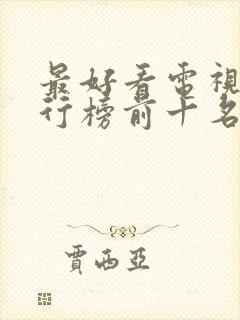 最好看電視
行榜前十名
賈西亞